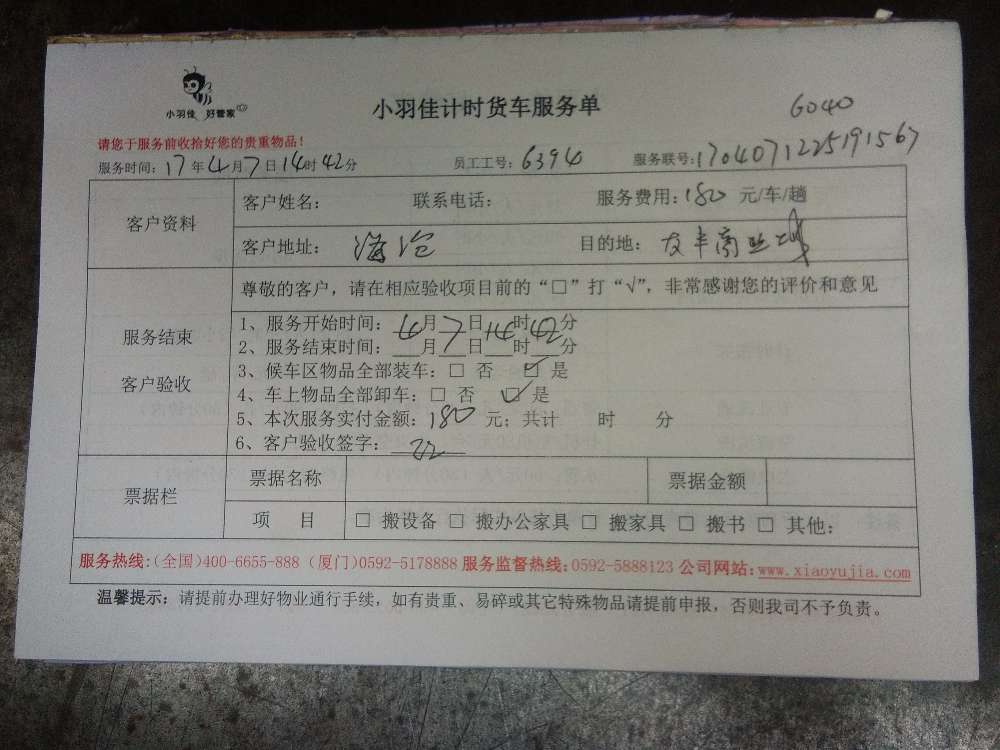 小羽佳 好管家
小羽佳计时货车服务单
6040
请您于服务前收拾好您的贵重物品!
服务时间: 17年4月7日14时42分 员工工号: 6394 服务联号: 1704071225191567
客户资料
客户姓名: 联系电话: 服务费用: 180 元/车/趟
客户地址: 海沧 目的地: 友丰商业城
服务结束
客户验收
尊敬的客户，请在相应验收项目前的“□”打“√”，非常感谢您的评价和意见
1、服务开始时间: 4月7日14时42分
2、服务结束时间: __月__日__时__分
3、候车区物品全部装车: □ 否 ☑ 是
4、车上物品全部卸车: □ 否 ☑ 是
5、本次服务实付金额: 180 元; 共计 时 分
6、客户验收签字:
票据栏
票据名称 票据金额
项 目 □ 搬设备 □ 搬办公家具 □ 搬家具 □ 搬书 □ 其他:
服务热线:(全国)400-6655-888 (厦门)0592-5178888 服务监督热线:0592-5888123 公司网站:www.xiaoyujia.com
温馨提示: 请提前办理好物业通行手续，如有贵重、易碎或其它特殊物品请提前申报，否则我司不予负责。